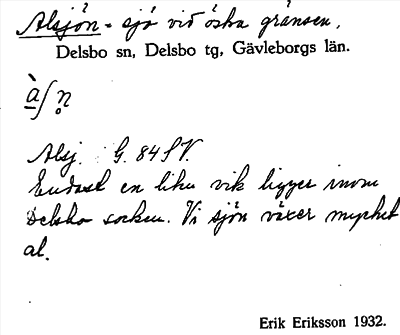 Alsjön - sjö vid östra gränsen.
Delsbo sn, Delsbo tg, Gävleborgs län.
Alsj. G. 84 SV.
Endast en liten vik ligger inom
Delsbo socken. Vi sjön växer mycket
al.
Erik Eriksson 1932.